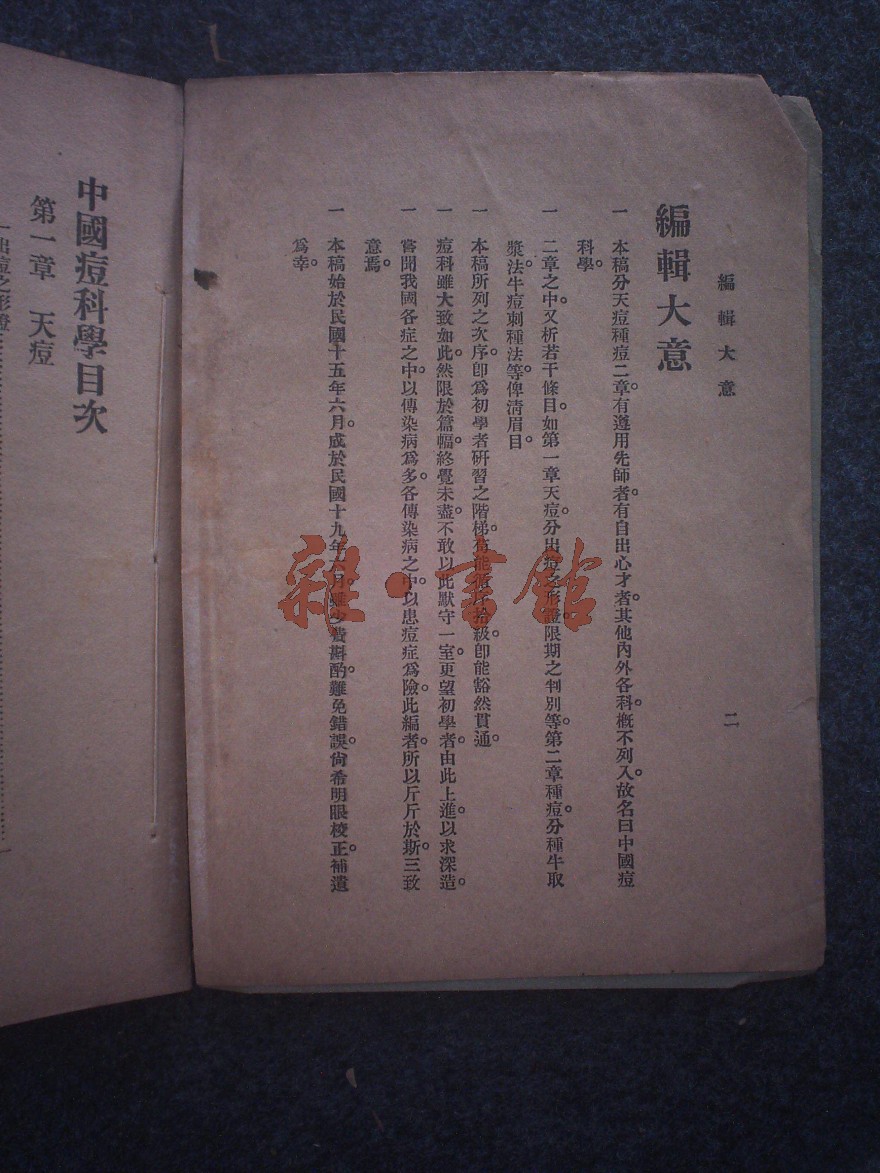 編輯大意
二
編輯大意
一 本稿分天痘種痘二章。有遵用先師者。有自出心才者。其他內外各科。槪不列入。故名曰中國痘
科學。
一 二章之中。又析若干條目。如第一章天痘。分出痘之形證。限期之判別等。第二章種痘。分種牛取
漿法。牛痘刺種法等。俾淸眉目。
一 本稿所列之次序。卽爲初學者硏習之階梯。苟能循序拾級。卽能豁然貫通。
一 痘科雖大致如此。然限於篇幅。終覺未盡。不敢以此默守一室。更望初學者。由此上進。以求深造。
一 嘗聞我國各症之中。以傳染病爲多。各傳染病之中。以患痘症爲險。此編者。所以斤斤於斯。三致
意焉。
一 本稿始於民國十五年六月。成於民國十九年六月。雖少費斟酌。難免錯誤。尙希明眼校正。補遺
爲幸。
中國痘科學目次
第一章 天痘
一出痘之形證
雜·書館